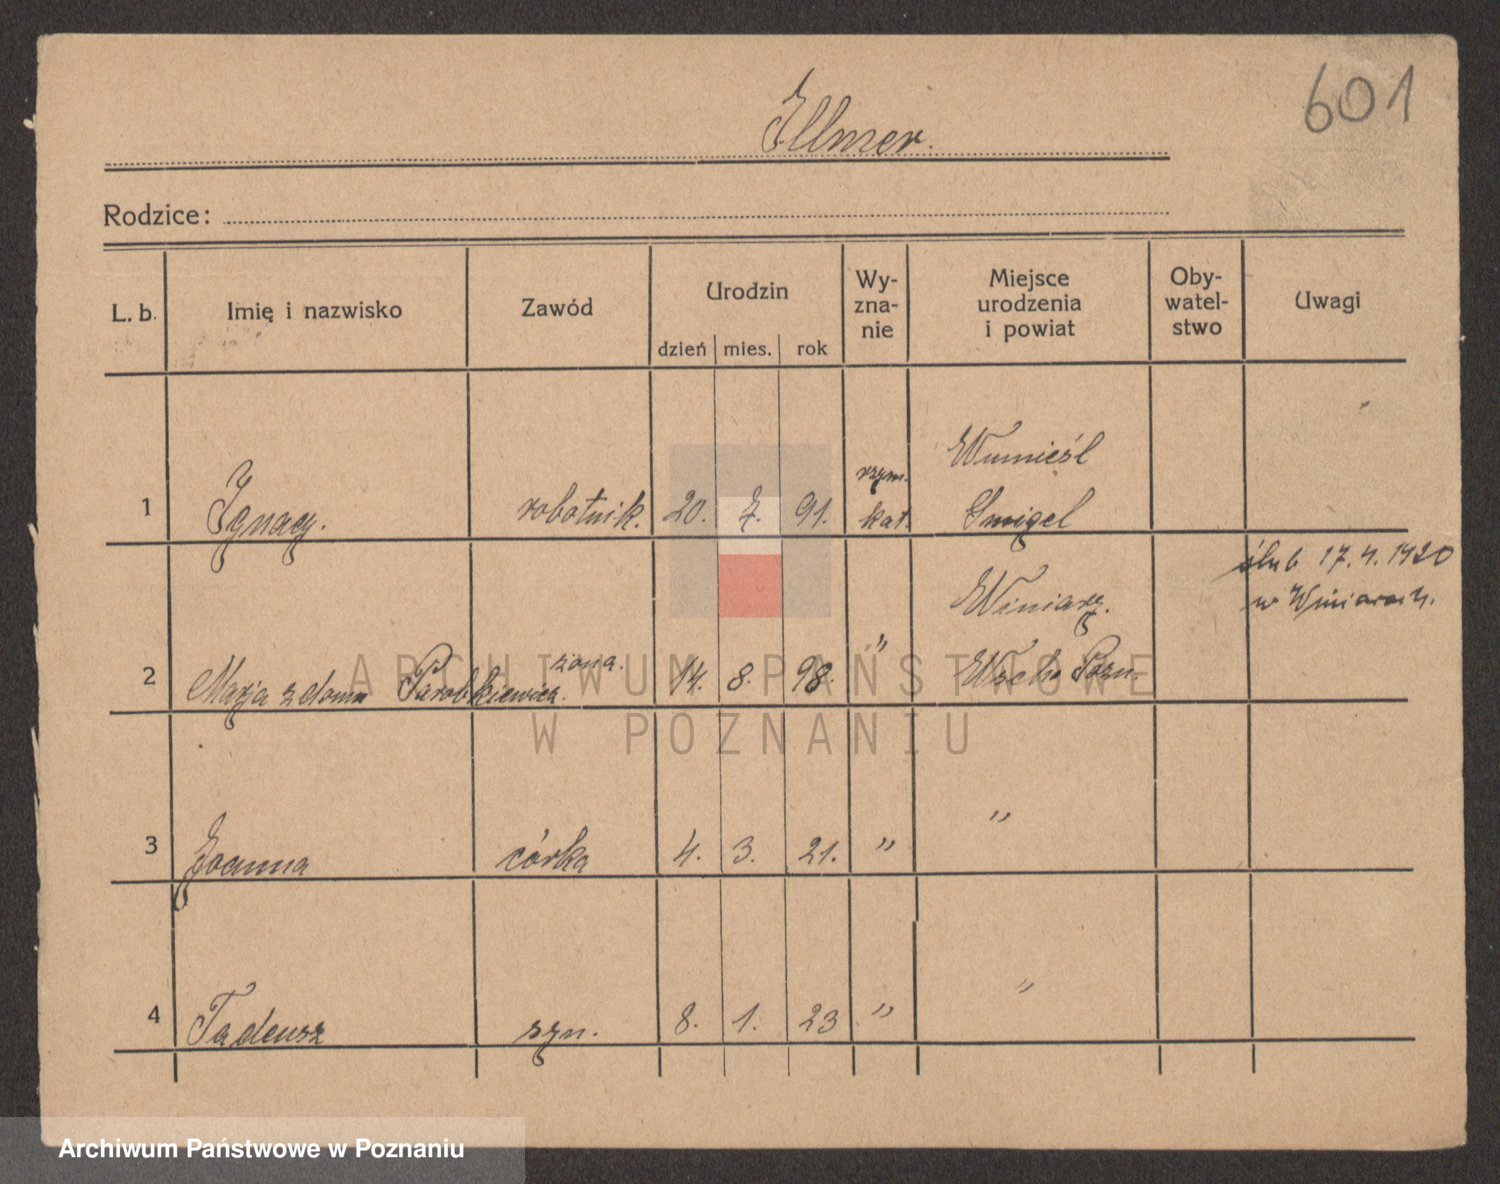 601
Ellmer.
Rodzice:
L. b. Imię i nazwisko Zawód Urodzin Wy-zna-nie Miejsce urodzenia i powiat Oby-watel-stwo Uwagi
dzień mies. rok
1 Ignacy. robotnik. 20. 7. 91. rzym. kat. Śmigel
ślub 17. 4. 1920
w Winiarach.
2 Marja z domu Parobkiewicz. żona. 14. 8. 98. " Winiary. Wsch. Pozn.
3 Joanna córka 4. 3. 21. " "
4 Tadeusz syn. 8. 1. 23 " "
ARCHIWUM PAŃSTWOWE
W POZNANIU
Archiwum Państwowe w Poznaniu